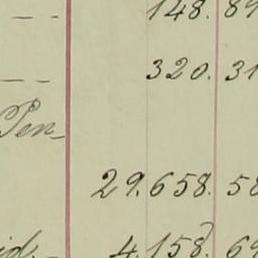 148. 89
320. 31
Pen-
29.658. 58
4.158. 69